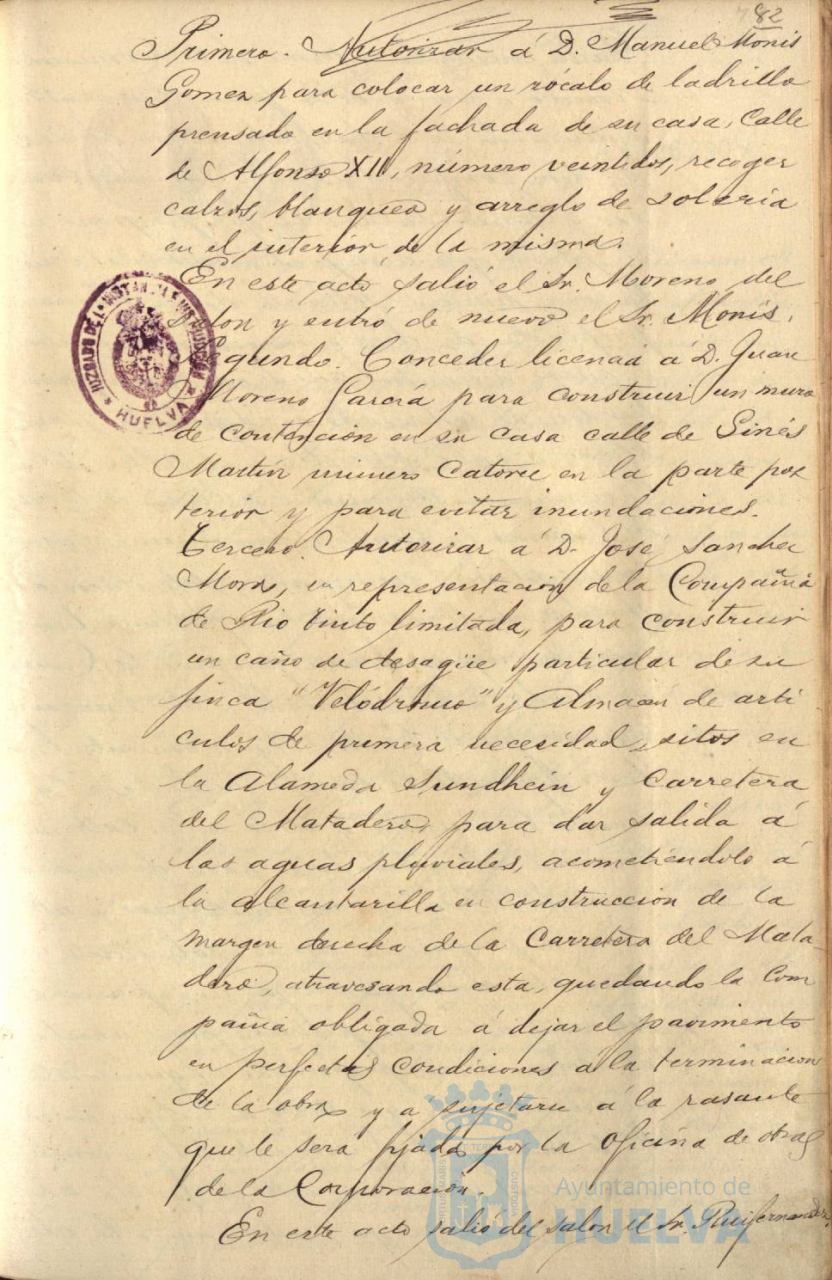 82
Primero. Autorizar á D. Manuel Monis
Gomez para colocar un rócalo de ladrillo
prensado en la fachada de su casa, Calle
de Alfonso XII, número veintidos, recoger
calzos, blanqueo y arreglo de soleria
en el interior, de la misma.
En este acto salió el Sr. Moreno del
Salon y entró de nuevo el Sr. Monis.
Segundo. Conceder licencia á D. Juan
Moreno García para construir un muro
de contención en su casa calle de Ginés
Martín número Catorce en la parte pos
terior y para evitar inundaciones.
Tercero. Autorizar á D. José Sanchez
Mora, en representación de la Compañia
de Rio Tinto limitada, para construir
un caño de desagüe particular de su
finca "Velódromo" y Almacén de arti
culos de primera necesidad, sitos en
la Alameda Sundhein y Carretera
del Matadero, para dar salida á
las aguas pluviales, acometiéndolo á
la alcantarilla en construccion de la
margen derecha de la Carretera del Mata-
dero, atravesando esta, quedando la Com
pañia obligada á dejar el pavimento
en perfectas condiciones á la terminacion
de la obra y a sujetarse á la rasante
que le sera fijada por la oficina de obras
de la Corporacion.
En este acto salió del salon el Sr. Ruifernandez
JUZGADO DE 1ª INSTANCIA E INSTRUCCION
HUELVA
Ayuntamiento de
HUELVA